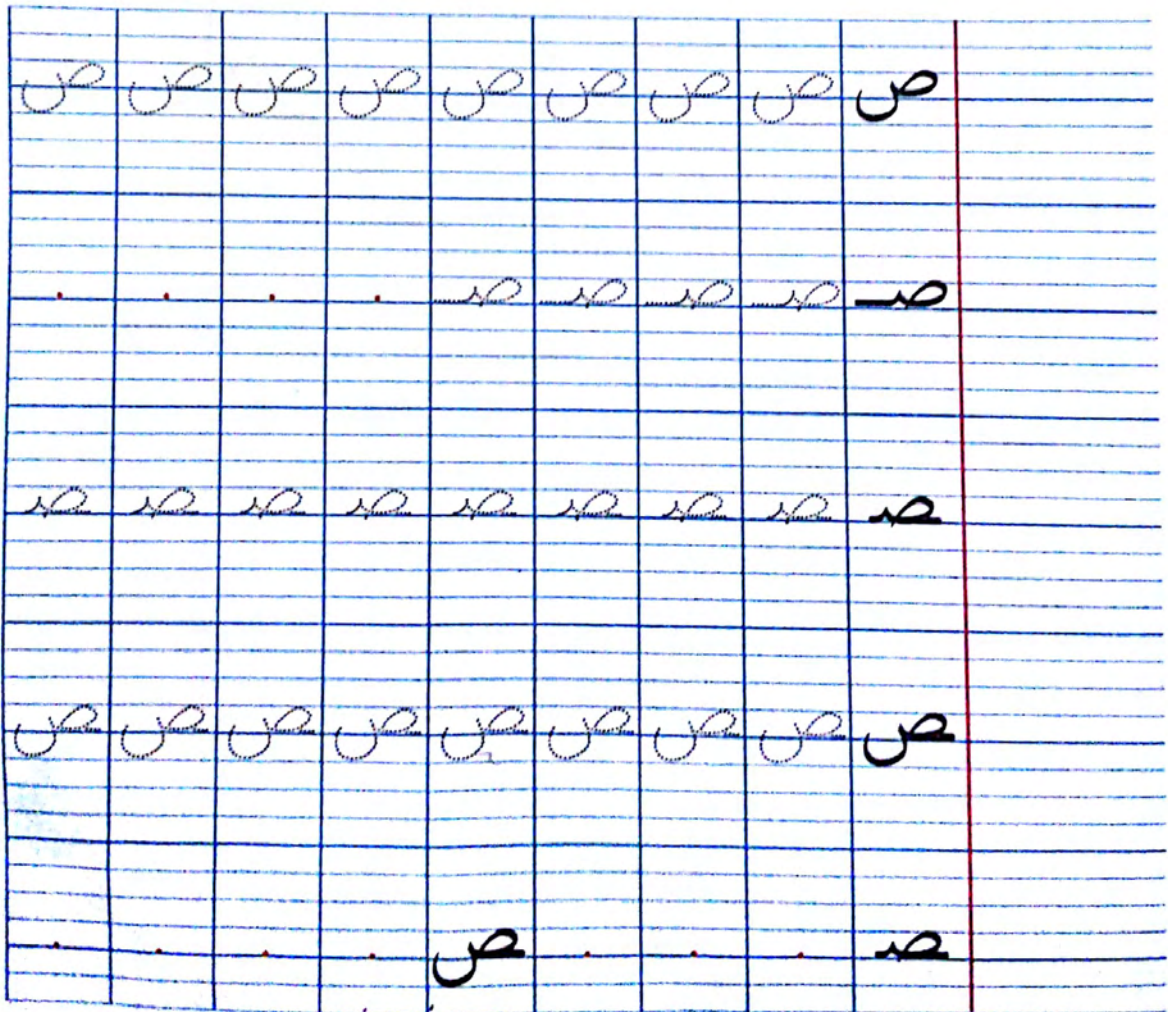 ص ص ص ص ص ص ص ص ص
صـ صـ صـ صـ صـ . . . .
ـصـ ـصـ ـصـ ـصـ ـصـ ـصـ ـصـ ـصـ ـصـ
ـص ـص ـص ـص ـص ـص ـص ـص ـص
ـصـ . . . ـص . . . .